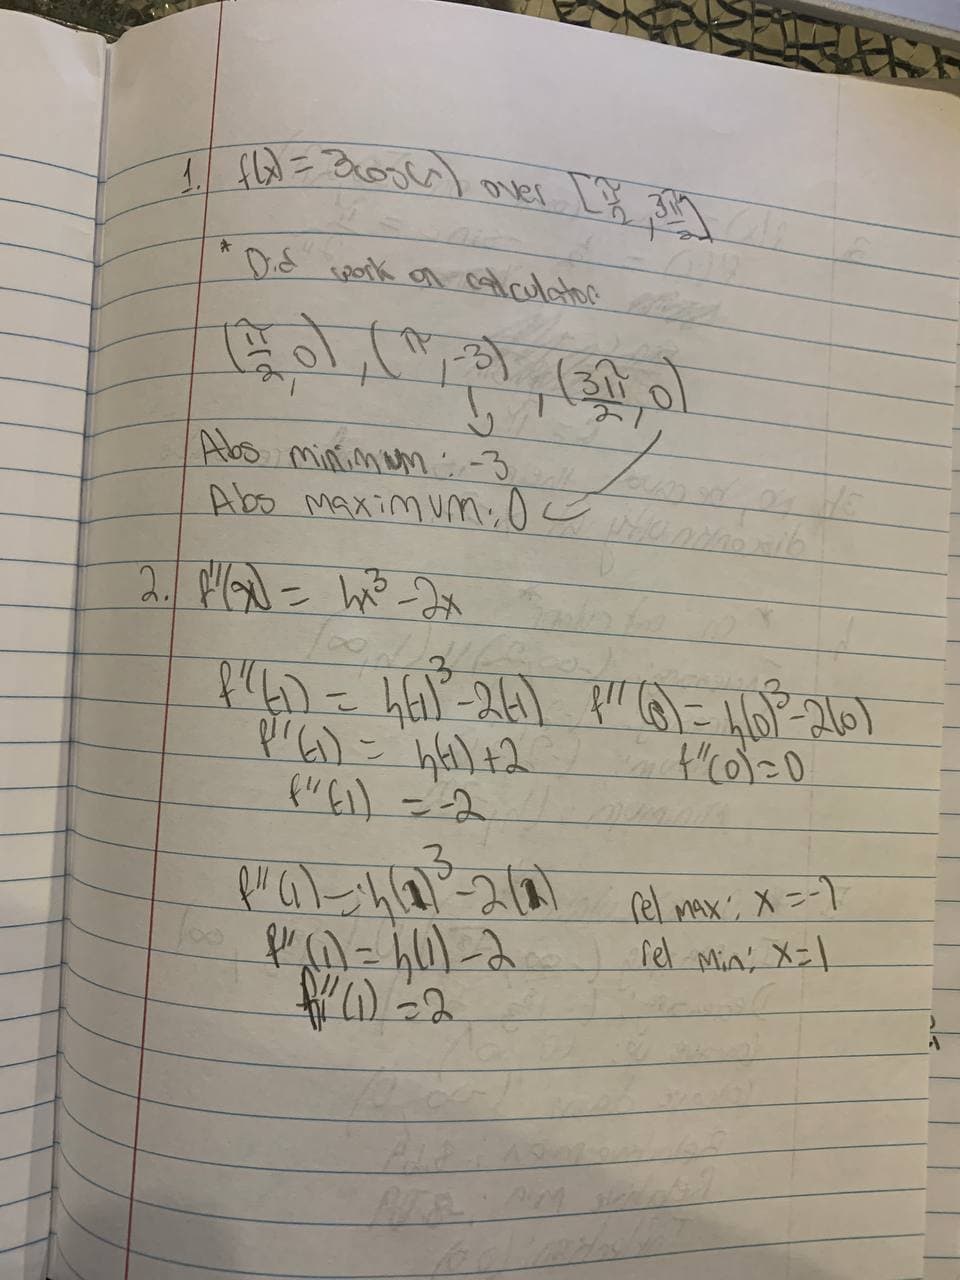 1. f(x) = 3cos(x) over [π/2, 3π/2]
* Did work on calculator
(π/2, 0), (π, -3), (3π/2, 0)
Abs minimum: -3
Abs maximum: 0
2. f''(x) = 4x³ - 2x
f''(-1) = 4(-1)³ - 2(-1) f''(0) = 4(0)³ - 2(0)
f''(-1) = 4(-1) + 2 f''(0) = 0
f''(-1) = -2
f''(1) = 4(1)³ - 2(1) rel max: x = -1
f''(1) = 4(1) - 2 rel min: x = 1
f''(1) = 2